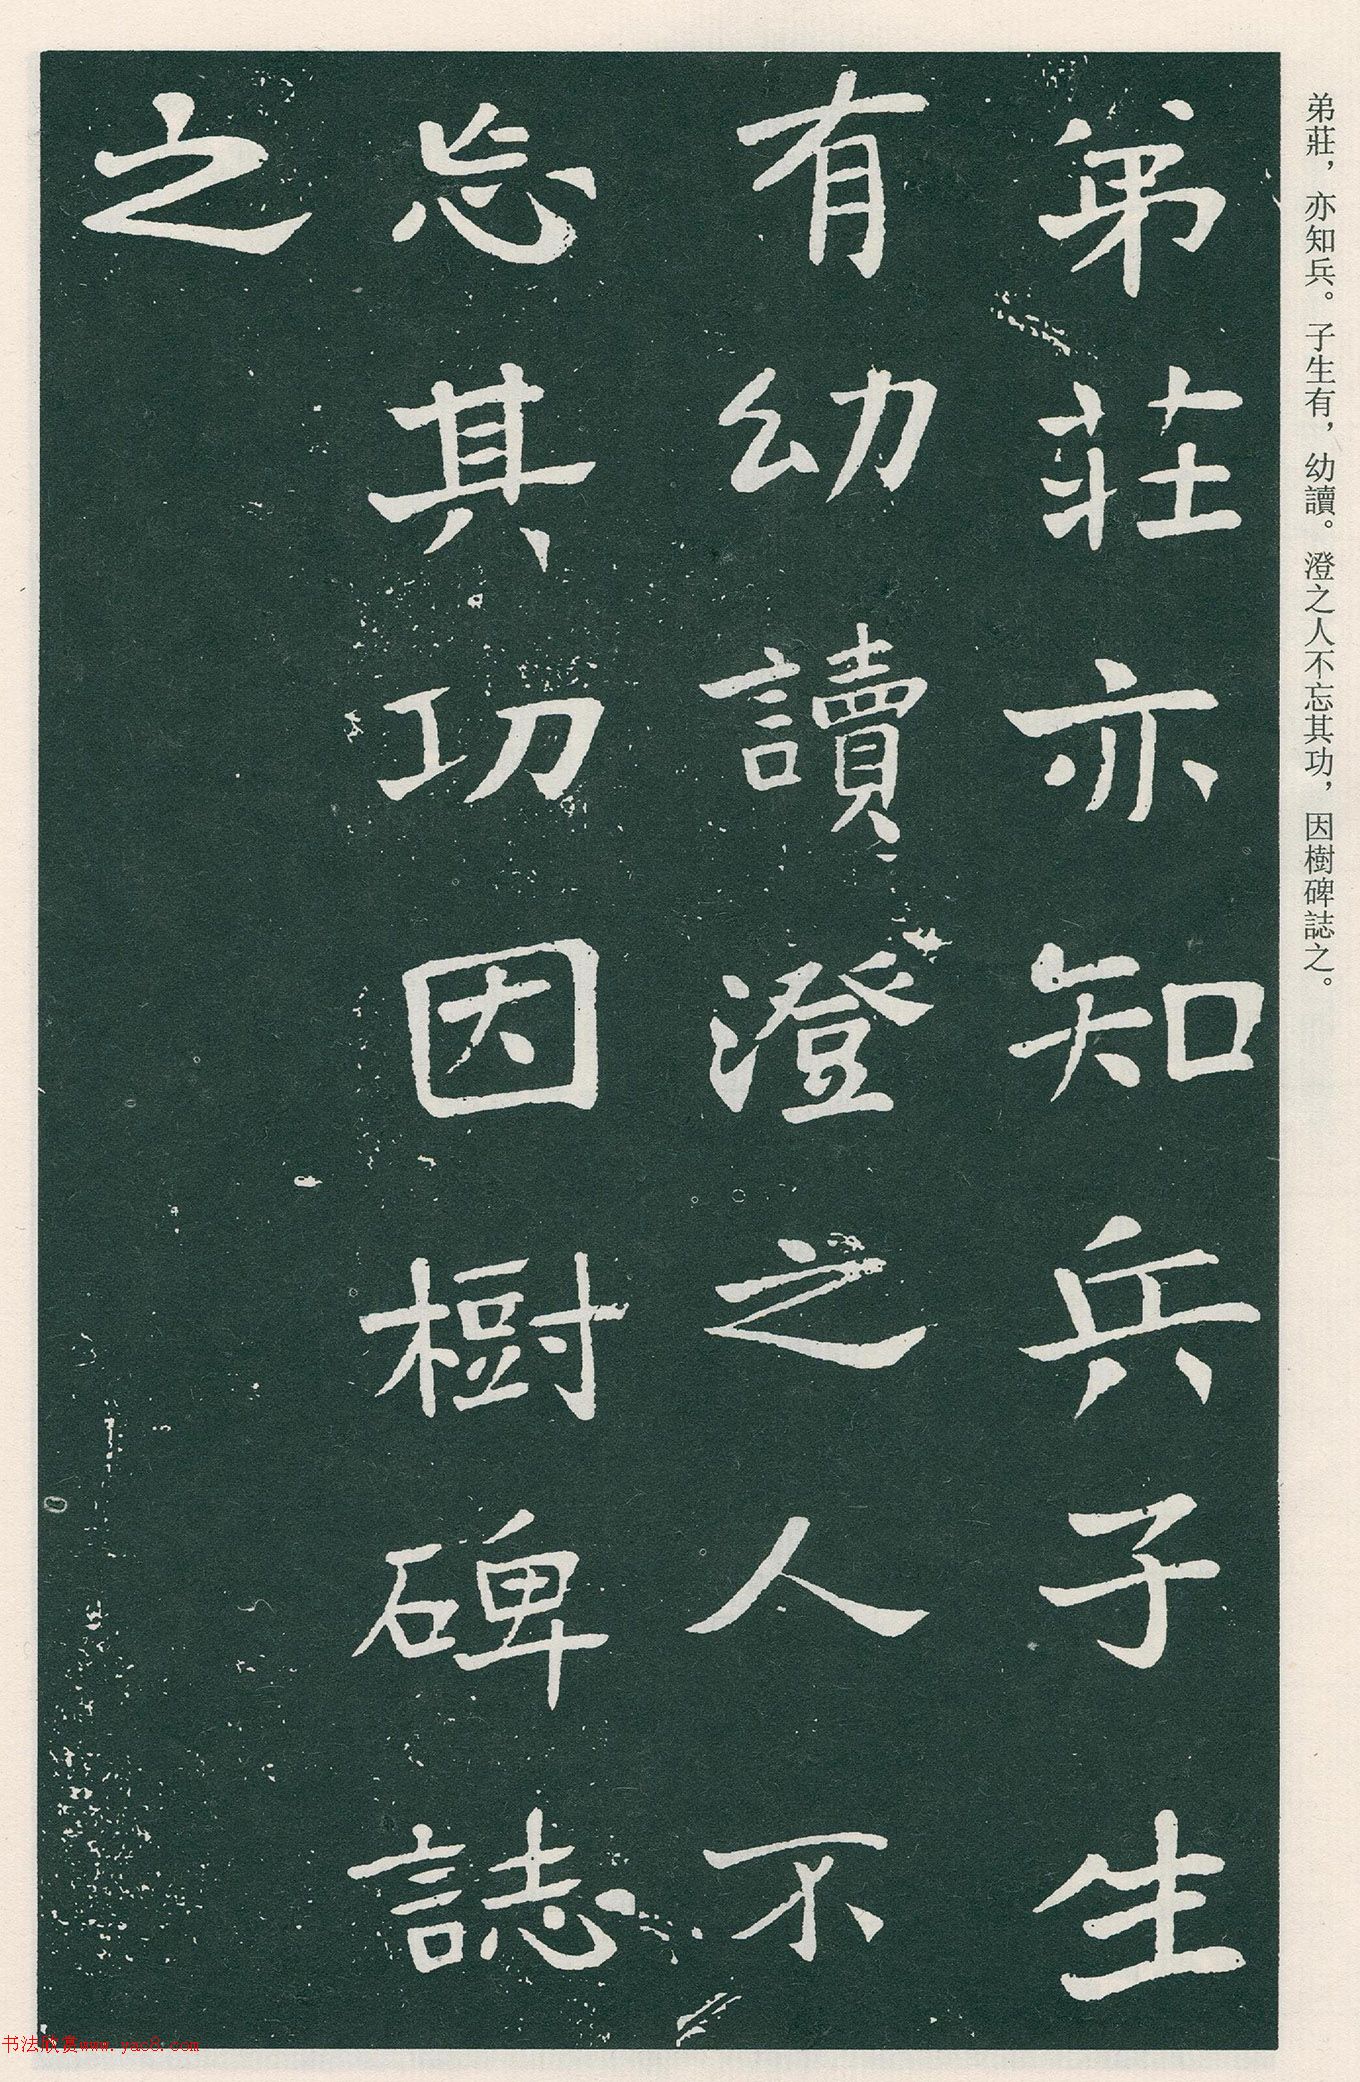 弟莊，亦知兵。子生有，幼讀。澄之人不忘其功，因樹碑誌之。
弟莊亦知兵子生
有幼讀澄之人不
忘其功因樹碑誌
之
书法欣赏www.yac8.com